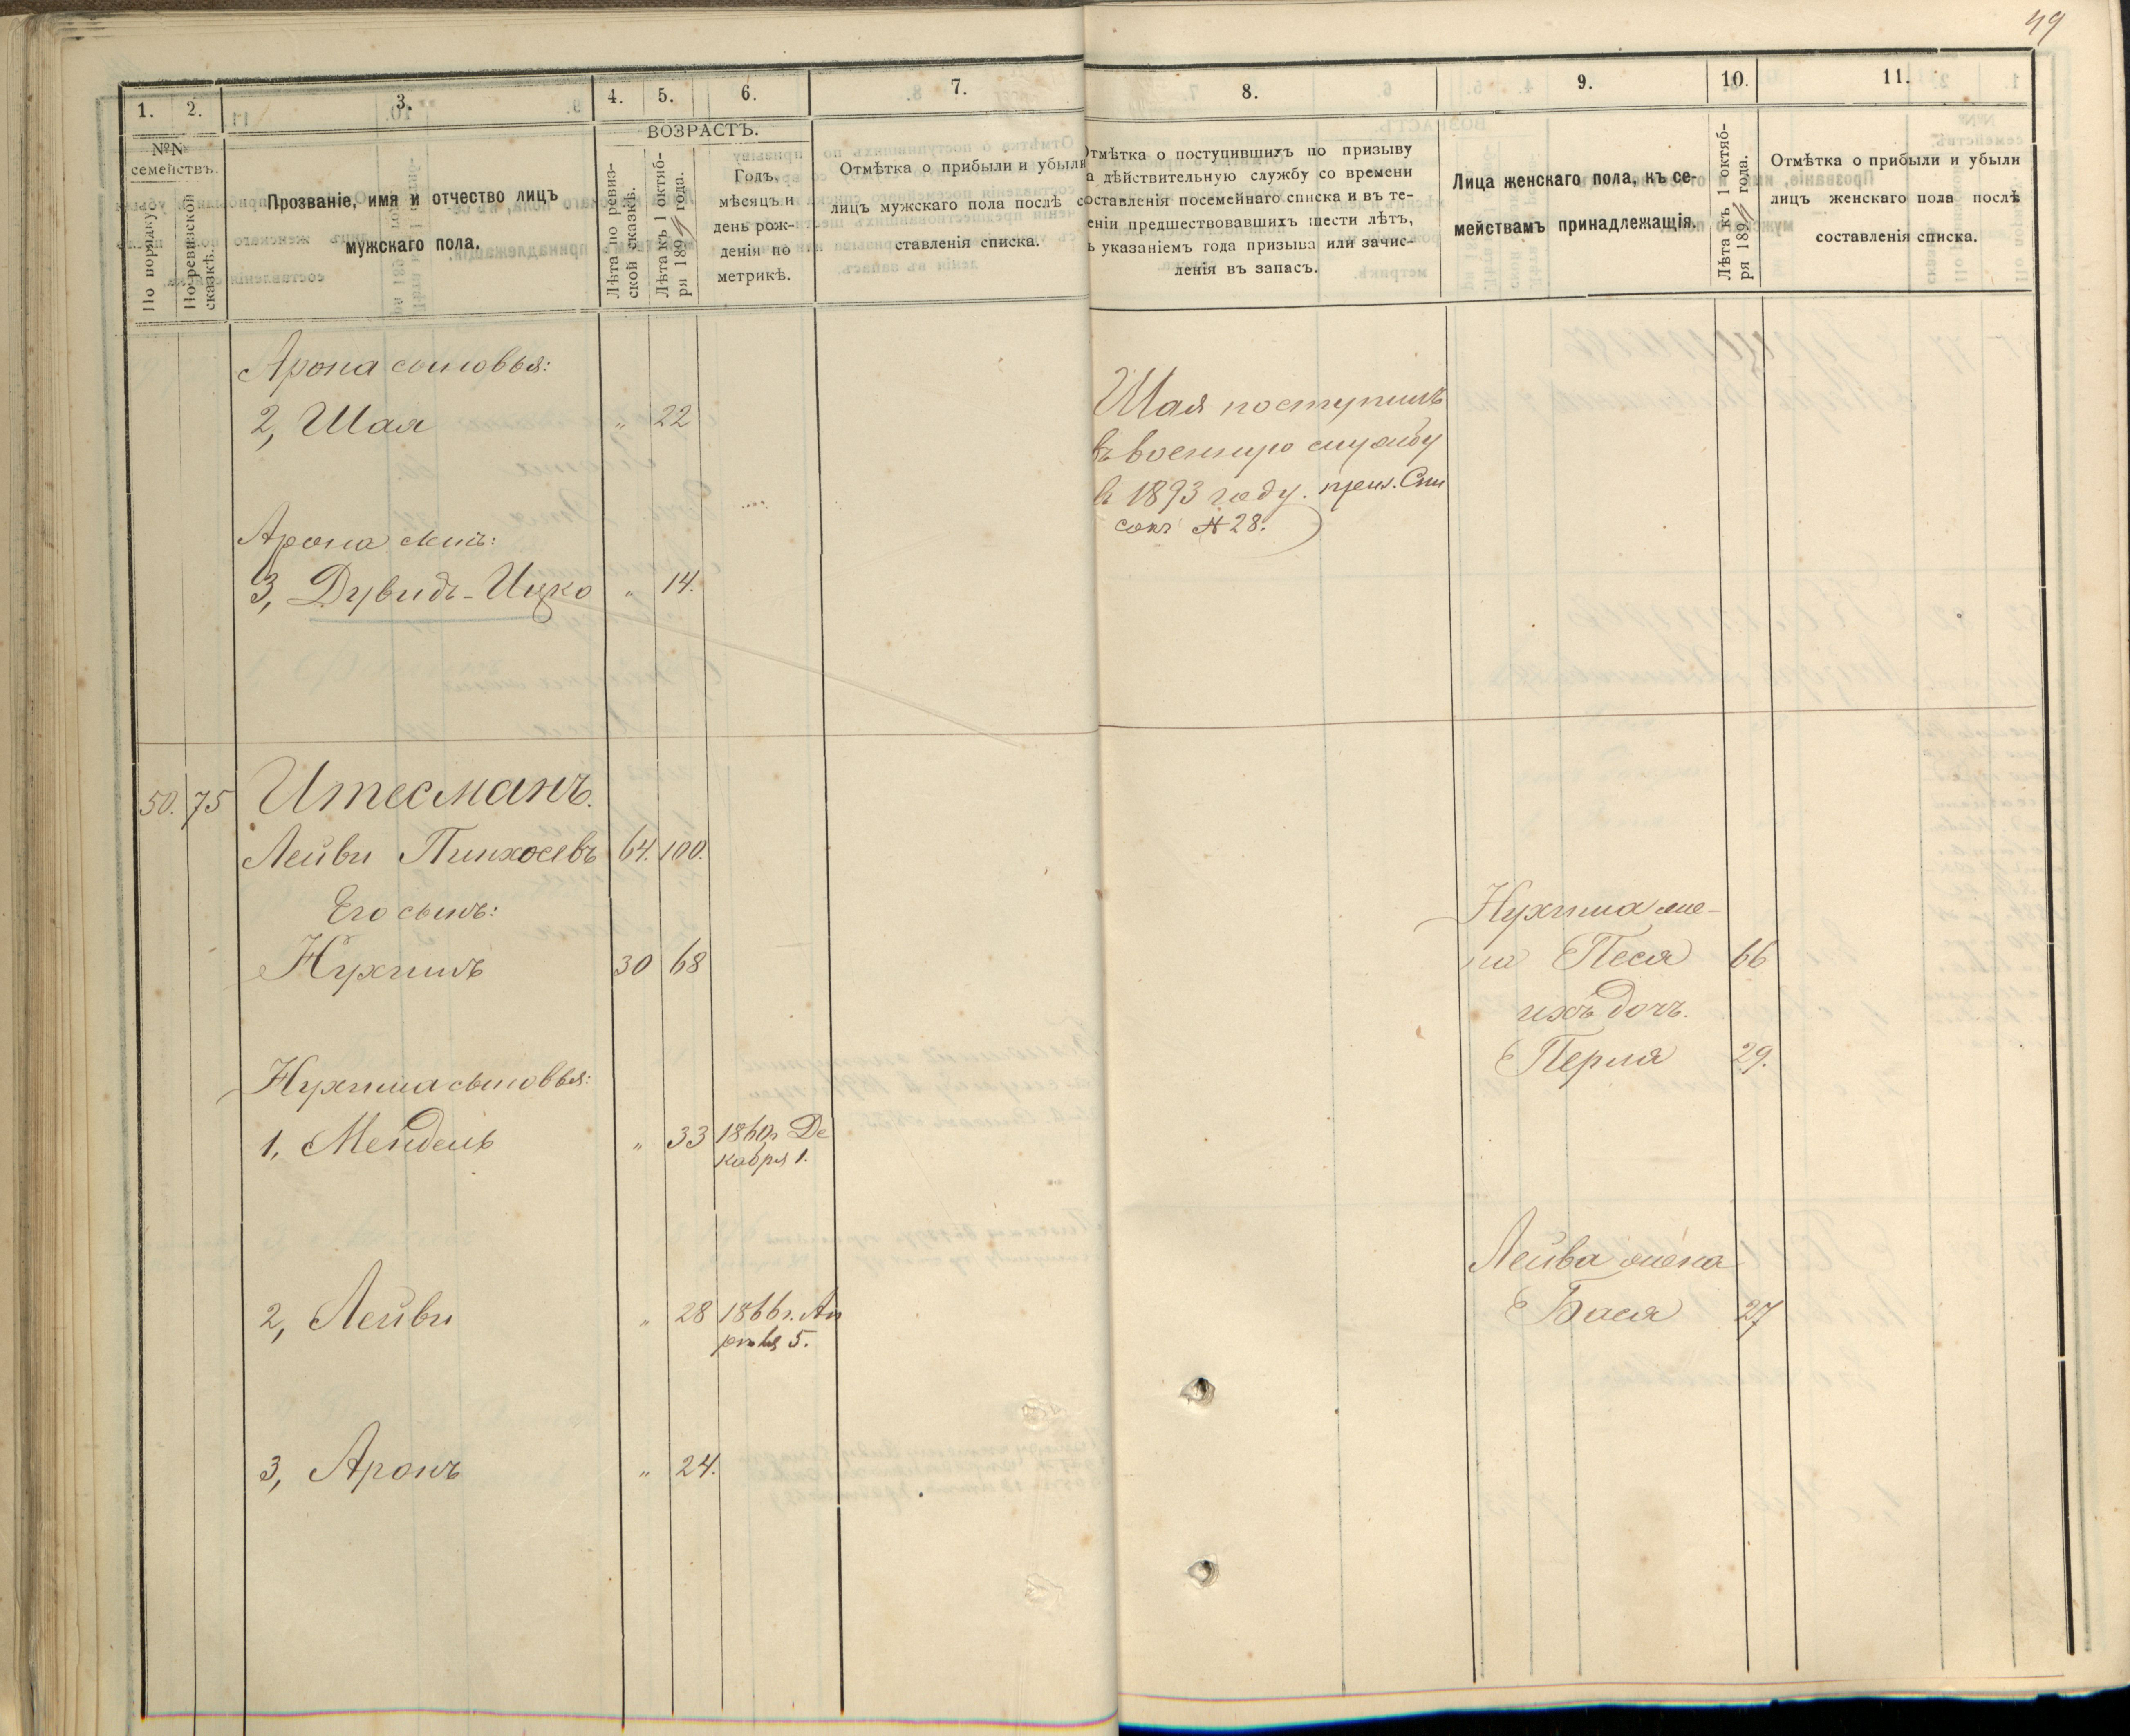 49
1. 2. 3. 4. 5. 6. 7. 8. 9. 10. 11.
№№ семействъ.
По порядку.
По ревизской сказкѣ.
Прозваніе, имя и отчество лицъ
мужскаго пола.
ВОЗРАСТЪ.
Лѣта по ревиз-
ской сказкѣ.
Лѣта къ 1 октяб-
ря 1894 года.
Годъ,
мѣсяцъ и
день рож-
денія по
метрикѣ.
Отмѣтка о прибыли и убыли
лицъ мужскаго пола послѣ со-
ставленія списка.
Отмѣтка о поступившихъ по призыву
на дѣйствительную службу со времени
составленія посемейнаго списка и въ те-
ченіи предшествовавшихъ шести лѣтъ,
съ указаніемъ года призыва или зачис-
ленія въ запасъ.
Лица женскаго пола, къ се-
мействамъ принадлежащія.
Лѣта къ 1 октяб-
ря 1894 года.
Отмѣтка о прибыли и убыли
лицъ женскаго пола послѣ
составленія списка.
Арона сыновья:
2, Шая „ 22
Шая поступилъ
въ военную службу
въ 1893 году. приз. Спи
сокъ № 28.
Арона сынъ:
3, Дувидъ-Ицко „ 14.
50. 75 Итесманъ.
Лейви Пинхосевъ 64. 100.
Его сынъ:
Нухимъ 30 68
Нухима же-
на Песя 66
ихъ дочь.
Перля 29.
Нухима сыновья:
1, Мендель „ 33 1860г. Де
кабря 1.
Лейва жена
2, Лейви „ 28 1866г. Ап
рѣля 5.
Бася 27
3, Аронъ „ 24.